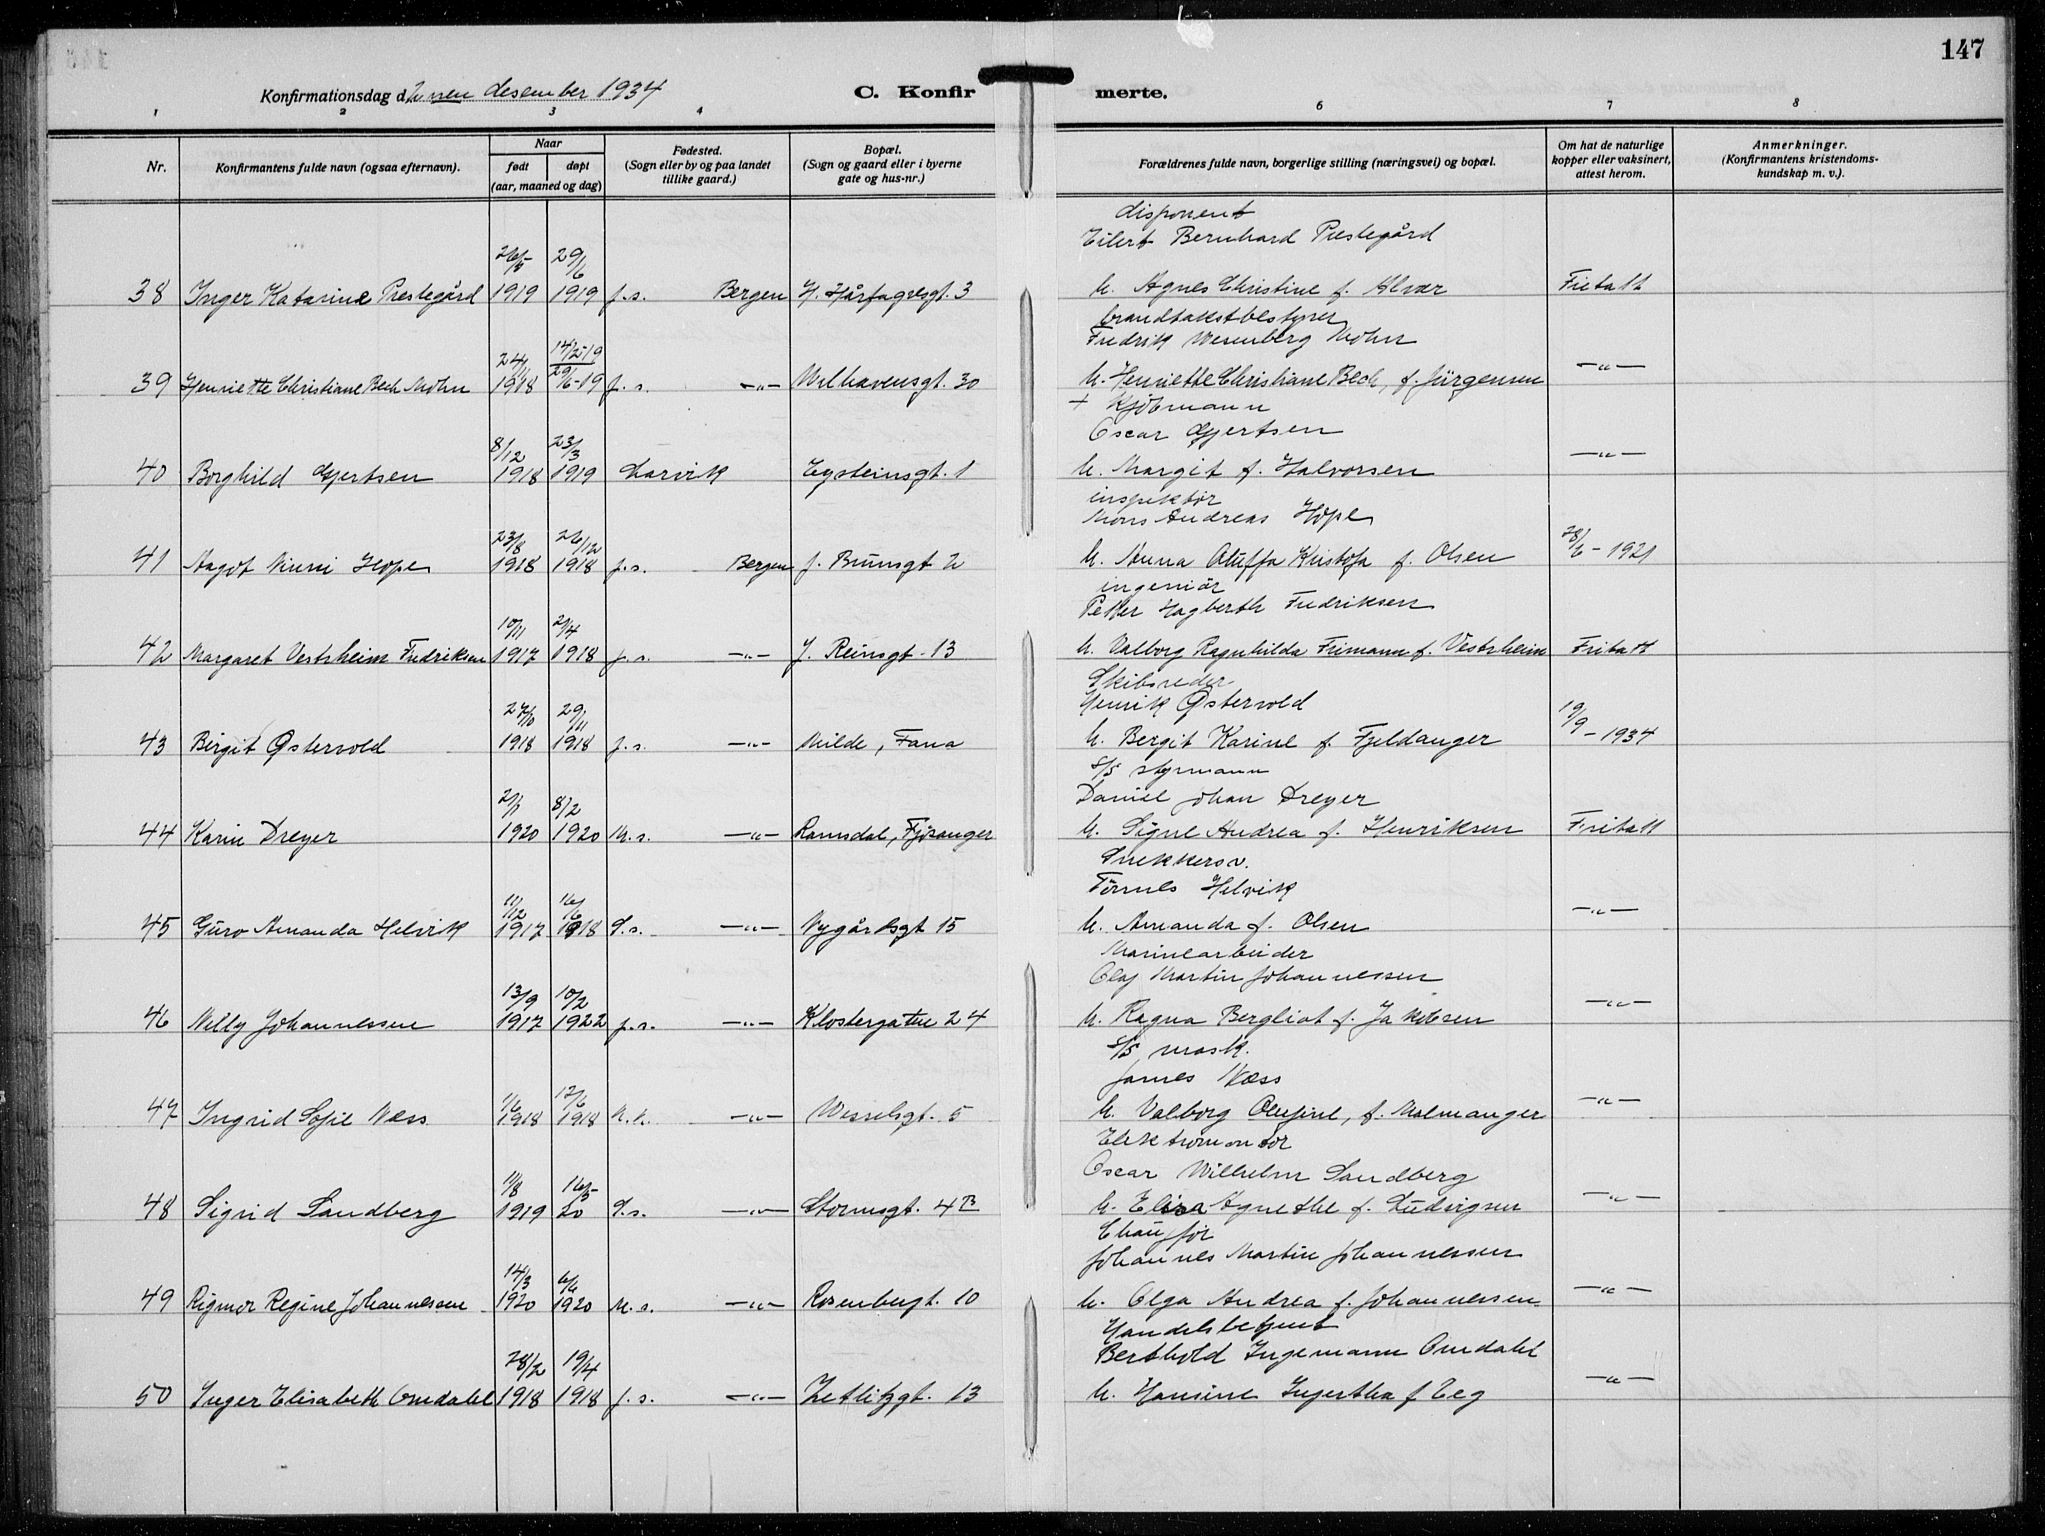 147
Konfirmationsdag d. 2nen desember 1934
C. Konfirmerte.
1 2 3 4 6 7 8
Nr. Konfirmantens fulde navn (ogsaa efternavn). Naar født døpt (aar, maaned og dag) Fødested. (Sogn eller by og paa landet tillike gaard.) Bopæl. (Sogn og gaard eller i byerne gate og hus-nr.) Forældrenes fulde navn, borgerlige stilling (næringsvei) og bopæl. Om hat de naturlige kopper eller vaksinert, attest herom. Anmerkninger. (Konfirmantens kristendoms-kundskap m. v.).
disponent
Eilert Bernhard Prestegård
26/5 29/6
38 Inger Katarine Prestegård 1919 1919 J.s. Bergen H. Hårfagresgt. 3 h. Agnes Christine f. Alvær Fritatt
brandtakstbestyrer
Fredrik Wesenberg Mohn
24/11 14/2-19
39 Henriette Christiane Bech Mohn 1918 29/6-19 J.s. -"- Welhavensgt. 30 h. Henriette Christiane Bech, f. Jürgensen -"-
+ Kjöbmann
Oscar Gjertsen
8/12 23/3
40 Borghild Gjertsen 1918 1919 Larvik Eysteinsgt. 1 h. Margit f. Halvorsen -"-
inspektör
Mons Andreas Hope
23/8 26/12 28/6 - 1921
41 Aagot Ninni Hope 1918 1918 J.s. Bergen J. Brunsgt 2 h. Anna Oluffa Kristofa f. Olsen
ingeniör
Petter Hagberth Fredriksen
10/11 2/4
42 Margaret Vestrheim Fredriksen 1917 1918 J.s. -"- J. Reinsgt. 13 h. Valborg Ragnhilda Frimann f. Vestrheim Fritatt
Skibsreder
Henrik Østervold
27/10 29/11 19/9 - 1934
43 Birgit Østervold 1918 1918 J.s. -"- Milde, Fana h. Bergit Karine f. Fjeldanger
S/S styrmann
Daniel Johan Dreyer
2/1 8/2
44 Karin Dreyer 1920 1920 M.s. -"- Ramsdal, Fjösanger h. Signe Andrea f. Henriksen Fritatt
Snekkersv.
Tönnes Helvik
11/12 16/6
45 Guro Amanda Helvik 1917 1918 S.s. -"- Nygårdsgt 15 h. Amanda f. Olsen -"-
Marinearbeider
Olaf Martin Johannessen
13/9 10/2
46 Nelly Johannessen 1917 1922 J.s. -"- Klostergaten 24 h. Ragna Bergliot f. Jakobsen -"-
S/S mask.
James Næss
1/6 12/6
47 Ingrid Sofie Næss 1918 1918 N.k. -"- Wesselsgt. 5 h. Valborg Olufine, f. Malmanger -"-
Elektromontör
Oscar Wilhelm Sandberg
11/8 16/5
48 Sigrid Sandberg 1919 20 S.s. -"- Stormsgt. 4B h. Elisa Agnethe f. Ludvigsen -"-
Chaufför
Johannes Martin Johannessen
14/3 6/6
49 Rigmor Regine Johannessen 1920 1920 M.s. -"- Rosenbergt. 10 h. Olga Andrea f. Johannessen -"-
Handelsbetjent
Berthold Ingemann Omdahl
28/2 19/4
50 Inger Elisabeth Omdahl 1918 1918 J.s. -"- Zetlitzgt. 13 h. Hansine Ingertha f Eeg -"-